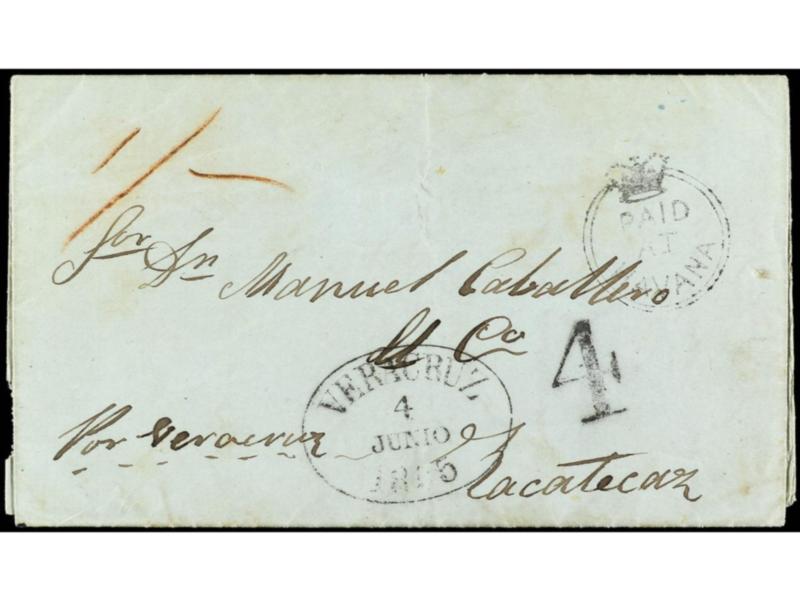 1/-
PAID
AT
HAVANA
Sor. Dn. Manuel Caballero
& Co
4
VERACRUZ
4
JUNIO
Por Veracruz
Zacatecaz